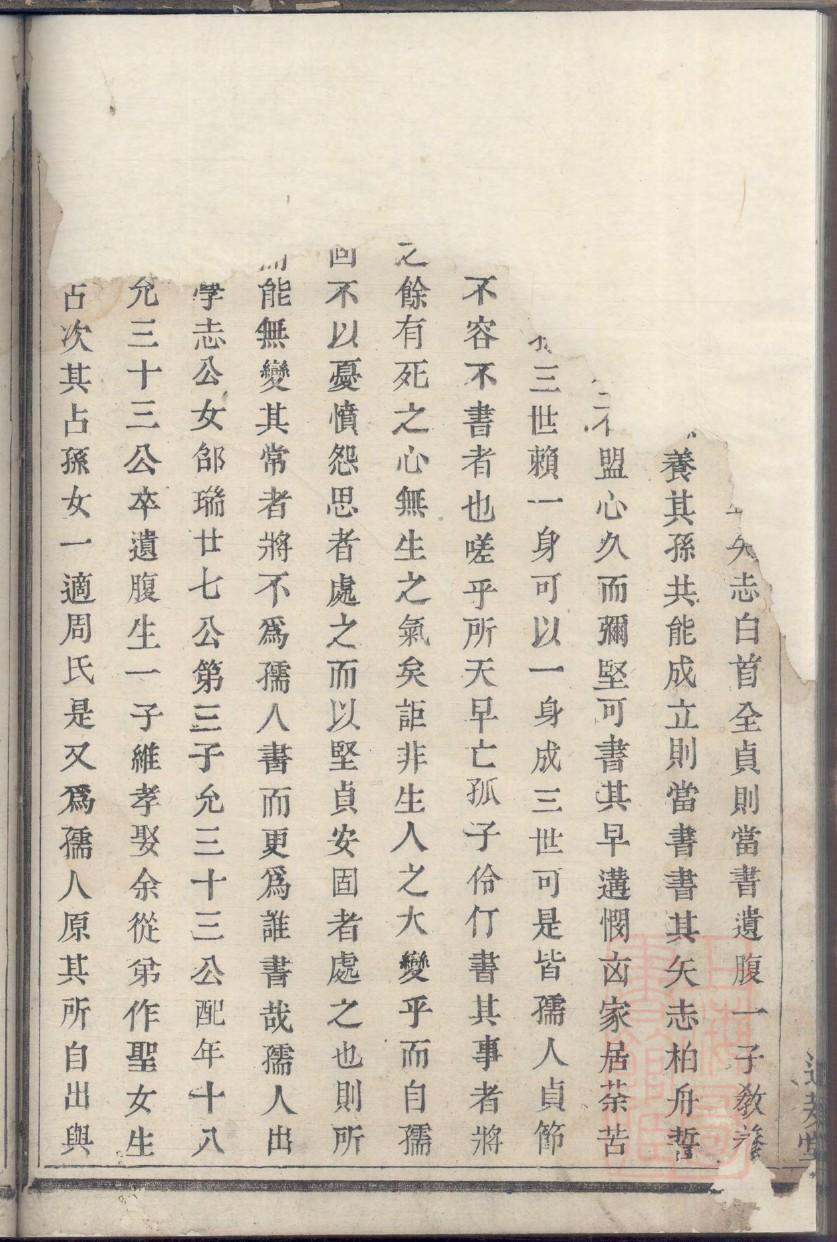 矢志白首全貞則當書遺腹一子教養
養其孫共能成立則當書書其矢志柏舟誓
盟心久而彌堅可書其早遘憫凶家居荼苦
三世賴一身可以一身成三世可是皆孺人貞節
不容不書者也嗟乎所天早亡孤子伶仃書其事者將
之餘有死之心無生之氣矣詎非生人之大變乎而自孺
不以憂憤怨思者處之而以堅貞安固者處之也則所
能無變其常者將不爲孺人書而更爲誰書哉孺人出
學志公女郃瑞廿七公第三子允三十三公配年十八
允三十三公卒遺腹生一子維孝娶余從弟作聖女生
占次其占孫女一適周氏是又爲孺人原其所自出與